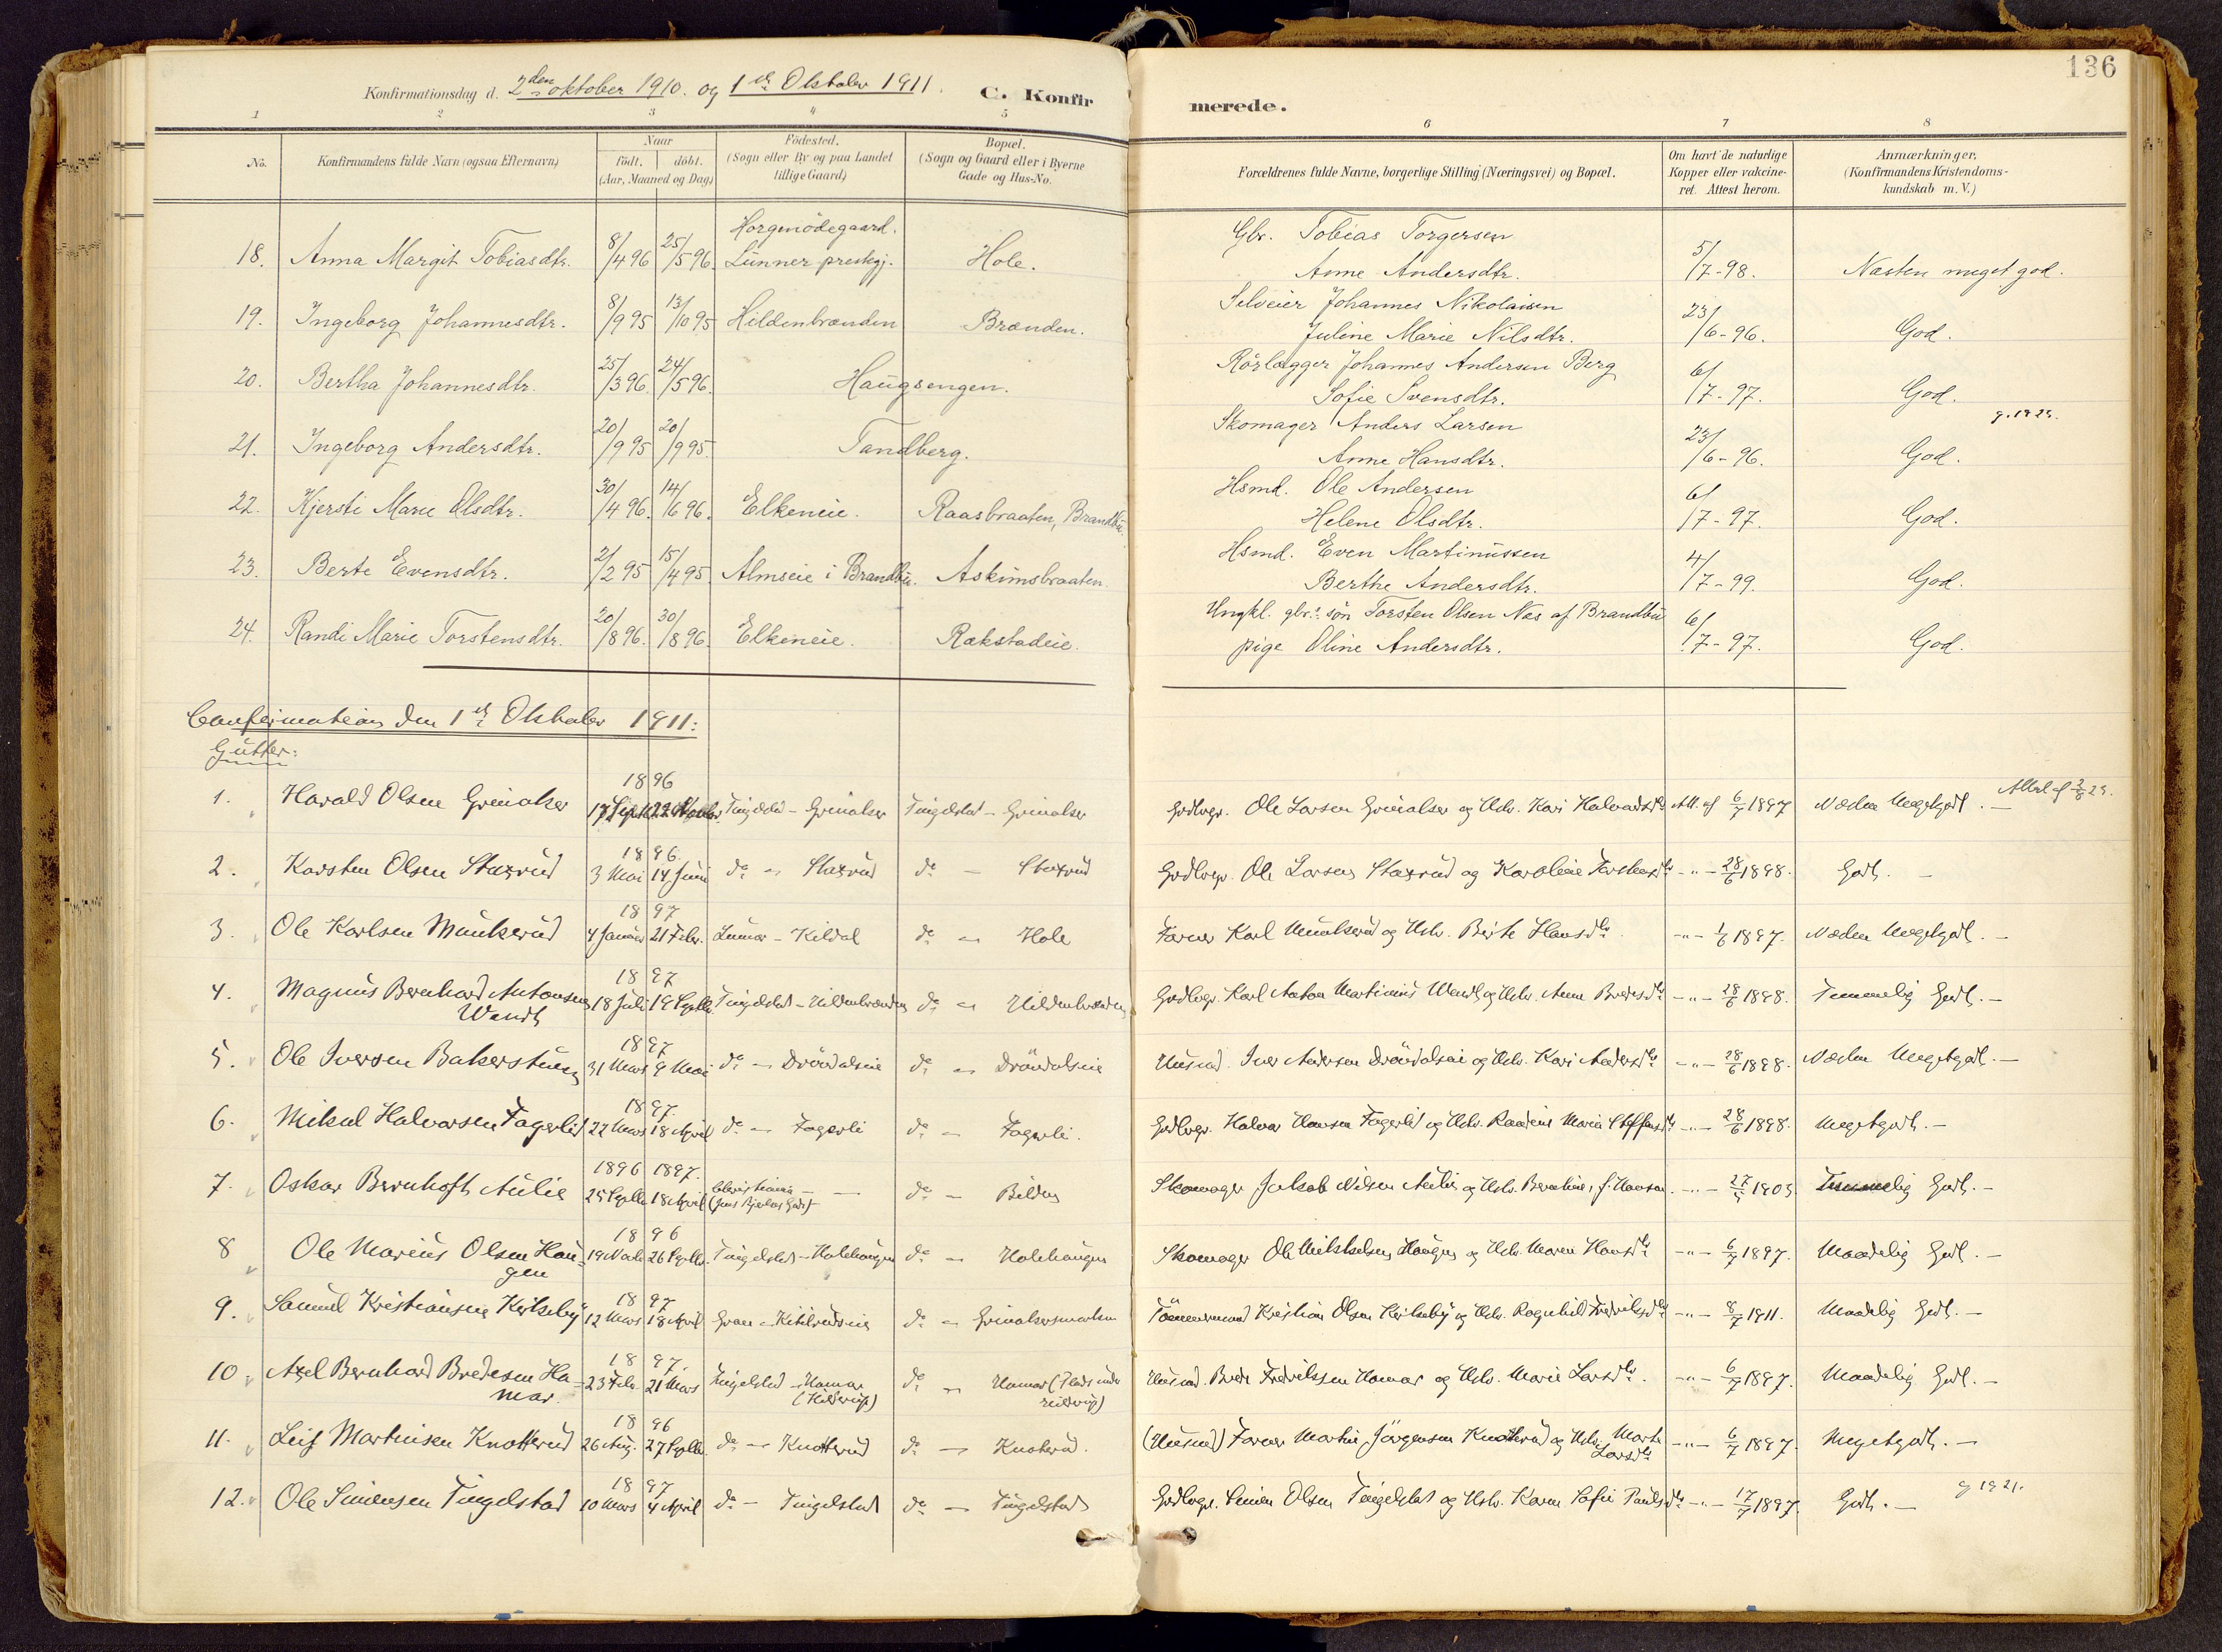 136
Konfirmationsdag d. 2den oktober 1910. og 1ste Oktober 1911. C. Konfirmerede.
1 2 3 4 5 6 7 8
No. Konfirmandens fulde Navn (ogsaa Efternavn) Naar født. døbt. (Aar, Maaned og Dag) Fødested. (Sogn eller By og paa Landet tillige Gaard) Bopæl. (Sogn og Gaard eller i Byerne Gade og Hus-No. Forældrenes fulde Navne, borgerlige Stilling (Næringsvei) og Bopæl. Om havt de naturlige Kopper eller vakcineret. Attest herom. Anmærkninger. (Konfirmandens Kristendomskundskab m. V.)
Horgenødegaard. Gbr. Tobias Torgersen
18. Anna Margit Tobiasdtr. 8/4 96 25/5 96. Lunner prestegj. Hole. Anne Andersdtr. 5/7-98. Næsten meget god.
Selveier Johannes Nikolaisen
19. Ingeborg Johannesdtr. 8/9 95 13/10 95 Hildenbrænden Brænden. Juline Marie Nilsdtr. 23/6-96. God.
Rørlægger Johannes Andersen Berg
20. Bertha Johannesdtr. 25/3 96. 24/5 96. Haugsengen. Sofie Svensdtr. 6/7-97. God.
Skomager Anders Larsen
21. Ingeborg Andersdtr. 20/9 95 20/9 95. Tandberg. Anne Hansdtr. 23/6-96. God.
Hsmd. Ole Andersen
22. Kjersti Marie Olsdtr. 30/4 96. 14/6 96. Elkeneie. Raasbraaten, Brandbu. Helene Olsdtr. 6/7-97. God.
Hsmd. Even Martinussen
23. Berte Evensdtr. 2/2 95 15/4 95 Almseie i Brandbu. Askimsbraaten. Berthe Andersdtr. 4/7-99. God.
Ungkl. gbr.s søn Torsten Olsen Næs af Brandbu
24. Randi Marie Torstensdtr. 20/8 96. 30/8 96. Elkeneie. Rækstadeie. pige Oline Andersdtr. 6/7-97. God.
Confirmation den 1ste Oktober 1911:
Gutter:
1896
1. Harald Olsen Grinaker 17 Septbr 22 Novbr. Tingelstad - Grinaker Tingelstad - Grinaker Grdbrgr. Ole Larsen Grinaker og Hstr. Kari Halvorsdtr Att. af 6/7 1897 Næsten Megetgodt. -
1896.
2. Karsten Olsen Staxrud 3 Mai 14 Juni do - Staxrud do - Staxrud Grdbrgr. Ole Larsen Staxrud og Karoline Torstensdtr -"- 28/6 1898. Godt. -
1897
3. Ole Karlsen Munkerud 4 Januar 21 Febr. Lunner - Kildal do - Hole Farver Karl Munkerud og Hstr. Berte Hansdtr -"- 1/6 1897. Næsten Megetgodt. -
1897
4. Magnus Bernhard Antonsen Wendt 18 Juli 19 Septbr. Tingelstad - Hildenbrænden do - Hildenbrænden Grdbrgr. Karl Anton Martinius Wendt og Hstr. Anne Bredesdtr -"- 28/6 1898. Temmelig Godt. -
1897
5. Ole Iversen Bakerstuen 31 Mars 9 Mai do - Drøvdalseie do - Drøvdalseie Husmd. Iver Andersen Drøvdalseie og Hstr. Kari Andersdtr -"- 28/6 1898. Næsten Megetgodt. -
1897.
6. Mikal Halvorsen Fagerli 22 Mars 18 April do - Fagerli do - Fagerli. Grdbrgr. Halvor Hansen Fagerli og Hstr. Marie Steffensdtr -"- 28/6 1898. Megetgodt. -
1896 1897.
7. Oskar Bernhoft Aulie 25 Septbr 18 April Christiania - do - Bilden Skomager Jakob Nilsen Aulie og Hstr. Bernhine, f. Hansen. -"- 27/5 1903. Temmelig Godt. -
1896
8 Ole Marius Olsen Haugen 19 26 Septbr. Tingelstad - Holehaugen do - Holehaugen Skomager Ole Mikkelsen Haugen og Hstr. Maren Hansdtr -"- 6/7 1897. Maadelig Godt. -
1897
9. Samuel Kristiansen Kirkeby 12 Mars 18 April Gran - do - Grinakersmarken Tømmermand Kristian Olsen Kirkeby og Hstr. Ragnhild Fredriksdtr -"- 8/7 1911. Maadelig Godt. -
1897.
10. Axel Bernhard Bredesen Hamar. 23 Febr. 21 Mars Tingelstad - Hamar do - Hamar Husmd. Brede Fredriksen Hamar og Hstr. Marie Larsdtr. -"- 6/7 1897. Maadelig Godt. -
1896
11. Leif Martinsen Knotterud 26 Aug. 27 Septbr. do - Knotterud do - Knoterud. (Husmd) Farver Martin Jørgensen Knotterud og Hstr. Marte Larsdtr -"- 6/7 1897. Megetgodt. -
1897
12. Ole Simensen Tingelstad 10 Mars 4 April do - Tingelstad do - Tingelstad Grdbrgr. Simen Olsen Tingelstad og Hstr. Karen Sofie Paulsdtr -"- 17/7 1897. Godt. - g 1921.